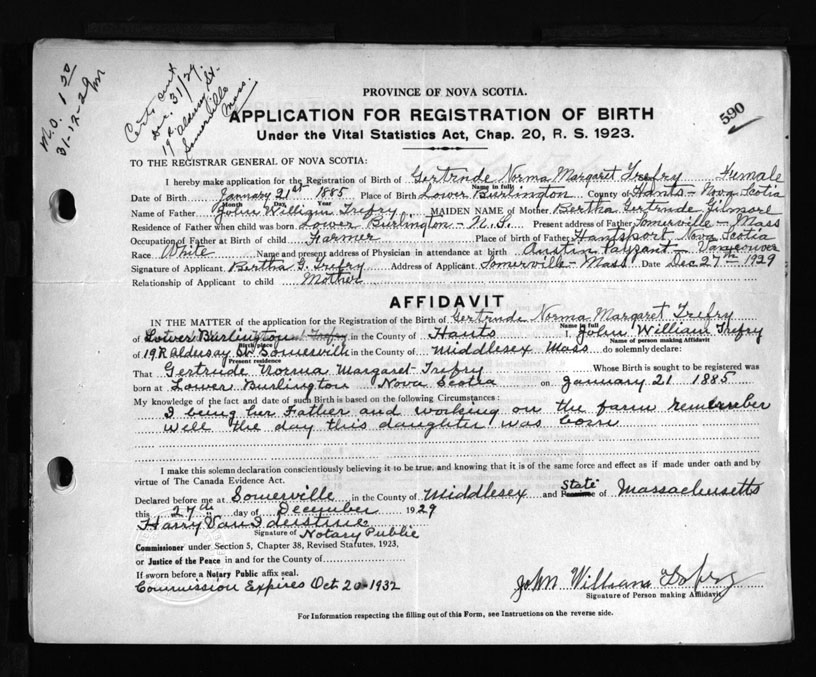 M.O. 1.00
31-12-29
Certs sent
Dec. 31/29.
19R Aldersey St.
Somerville
Mass.
590
PROVINCE OF NOVA SCOTIA.
APPLICATION FOR REGISTRATION OF BIRTH
Under the Vital Statistics Act, Chap. 20, R. S. 1923.
TO THE REGISTRAR GENERAL OF NOVA SCOTIA:
I hereby make application for the Registration of Birth of Gertrude Norma Margaret Trefry Female
Name in full
Date of Birth January 21st 1885 Place of Birth Lower Burlington County of Hants - Nova Scotia
Month Day Year
Name of Father John William Trefry MAIDEN NAME of Mother Bertha Gertrude Gilmore
Residence of Father when child was born Lower Burlington - N.S. Present address of Father Somerville - Mass
Occupation of Father at Birth of child Farmer Place of birth of Father Hantsport, Nova Scotia
Race White Name and present address of Physician in attendance at birth Austin Payzant - Vancouver
Signature of Applicant Bertha G. Trefry Address of Applicant Somerville - Mass Date Dec 27th 1929
Relationship of Applicant to child Mother
AFFIDAVIT
IN THE MATTER of the application for the Registration of the Birth of Gertrude Norma Margaret Trefry
Name in full
of Lower Burlington Trefry in the County of Hants I, John William Trefry
Birth place Name of person making Affidavit
of 19R Aldersay St. Somervill in the County of Middlesex Mass do solemnly declare:
Present residence
That Gertrude Norma Margaret Trefry Whose Birth is sought to be registered was
born at Lower Burlington Nova Scotia on January 21 1885
My knowledge of the fact and date of such Birth is based on the following Circumstances:
I being her Father and working on the farm remember
well the day this daughter was born
I make this solemn declaration conscientiously believing it to be true, and knowing that it is of the same force and effect as if made under oath and by
virtue of The Canada Evidence Act.
Declared before me at Somerville in the County of Middlesex and State Province of Massachusetts
this 27th day of December 1929
Harry Van Iderstine
Signature of Notary Public
Commissioner under Section 5, Chapter 38, Revised Statutes, 1923,
or Justice of the Peace in and for the County of
If sworn before a Notary Public affix seal.
Commission Expires Oct 20 - 1932
John William Trefry
Signature of Person making Affidavit
For Information respecting the filling out of this Form, see Instructions on the reverse side.